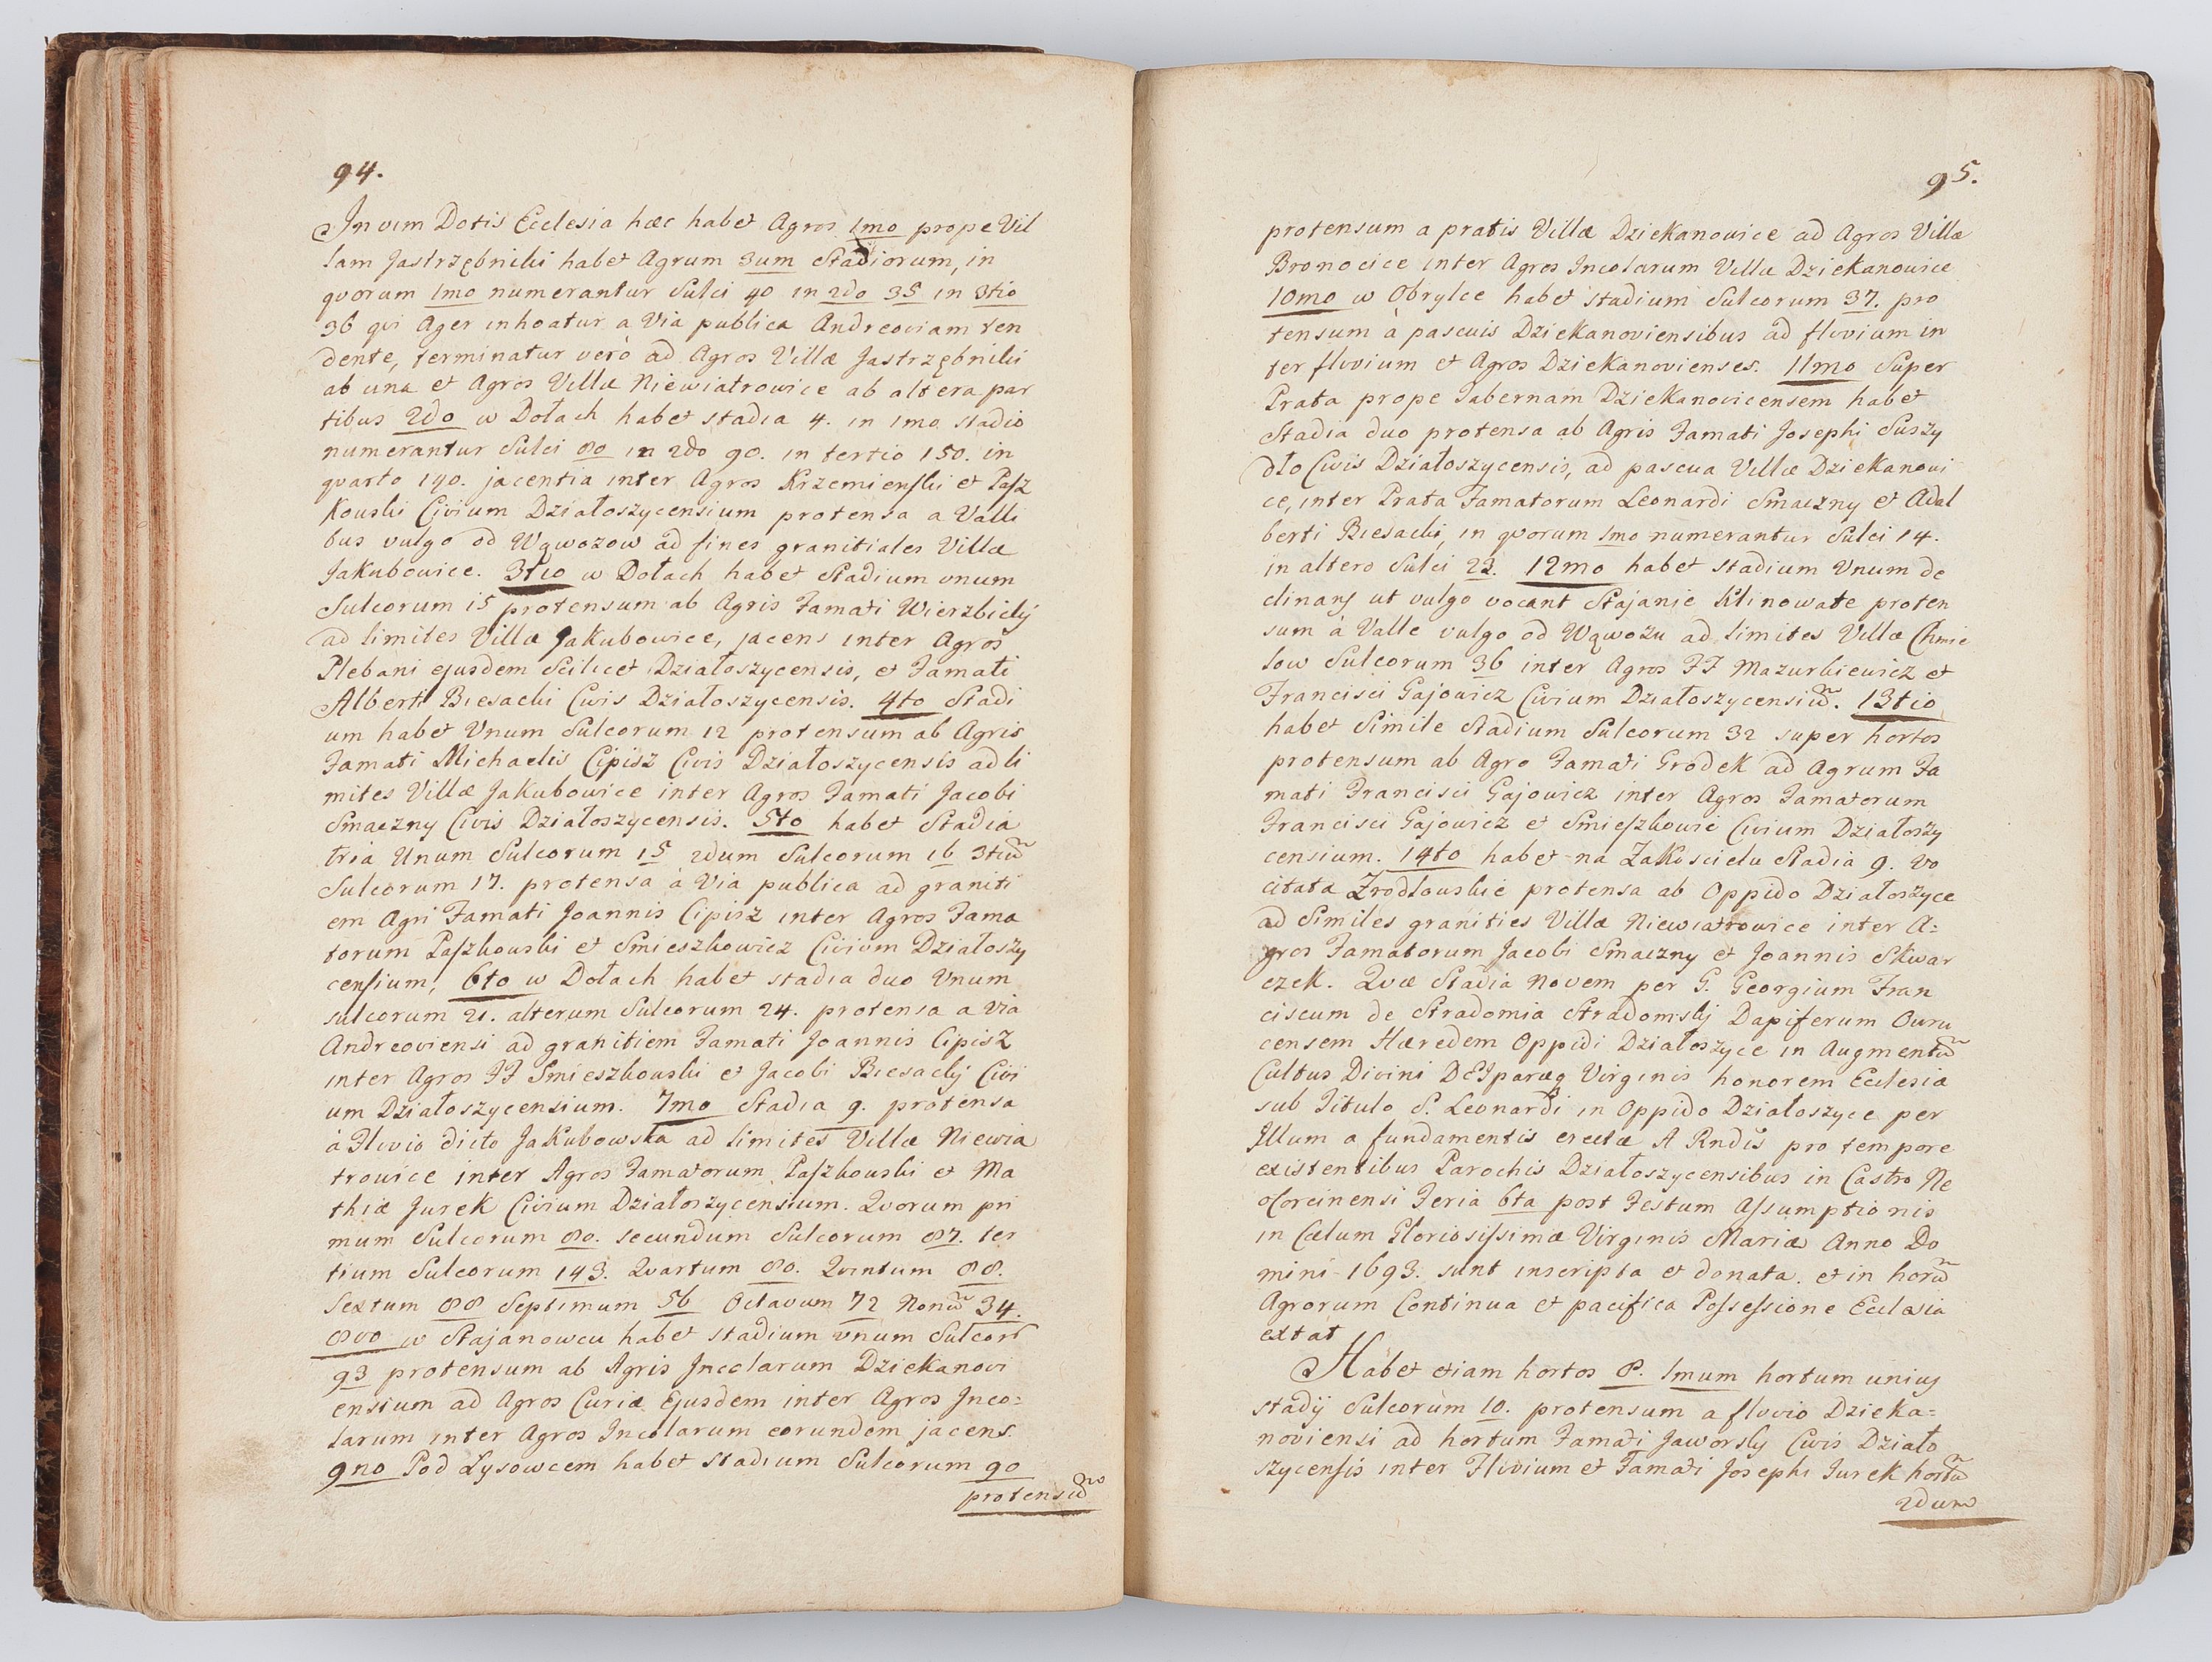 94.
In vim Dotis Ecclesia hæc habet Agros 1mo prope Vil
lam Jastrzębniki habet Agrum 3um Stadiorum, in
qvorum 1mo numerantur Sulci 40 in 2do 35 in 3tio
36 qvi Ager inhoatur a Via publica Andreoviam ten
dente, terminatur verò ad Agros Villæ Jastrzębniki
ab una et Agros Villæ Niewiatrowice ab altera par
tibus 2do w Dołach habet stadia 4. in 1mo stadio
numerantur Sulci 80 in 2do 90. in tertio 150. in
qvarto 190. jacentia inter Agros Krzemienski et Pasz
kouski Civium Działoszycensium protensa a Valli
bus vulgo od Wąwozow ad fines granitiales Villæ
Jakubowice. 3tio w Dołach habet Stadium unum
Sulcorum 15 protensum ab Agris Famati Wierzbickÿ
ad limites Villæ Jakubowice, jacens inter Agros
Plebani ejusdem Scilicet Działoszycensis, et Famati
Alberti Biesacki Civis Działoszycensis. 4to Stadi
um habet Unum Sulcorum 12 protensum ab Agris
Famati Michaelis Cipisz Civis Działoszycensis ad li
mites Villæ Jakubowice inter Agros Famati Jacobi
Smaczny Civis Działoszycensis. 5to habet Stadia
tria Unum Sulcorum 15 2dum Sulcorum 16 3tiũ
Sulcorum 17. protensa à Via publica ad graniti
em Agri Famati Joannis Cipisz inter Agros Fama
torum Paszkouski et Smieszkowicz Civium Działoszy
censium, 6to w Dołach habet stadia duo Unum
sulcorum 21. alterum Sulcorum 24. protensa a Via
Andreoviensi ad granitiem Famati Joannis Cipisz
inter Agros FF Smieszkouski et Jacobi Biesackÿ Civi
um Działoszycensium. 7mo Stadia 9. protensa
à Fluvio dicto Jakubowska ad limites Villæ Niewia
trowice inter Agros Famatorum Paszkouski et Ma
thiæ Jurek Civium Działoszycensium. Qvorum pri
mum Sulcorum 80. secundum Sulcorum 87. ter
tium Sulcorum 143. Qvartum 80. Qvintum 88.
Sextum 88 Septimum 56 Octavum 72 Nonũ 34.
8vo w Stajanowcu habet stadium unum Sulcorũ
93 protensum ab Agris Incolarum Dziekanovi
ensium ad Agros Curiæ Ejusdem inter Agros Inco=
larum inter Agros Incolarum eorundem jacens.
9no Pod Łysowcem habet stadium Sulcorum 90
protensũ
95.
protensum a pratis Villæ Dziekanowice ad Agros Villæ
Bronocice inter Agros Incolarum Villæ Dziekanowice
10mo w Obrylce habet stadium Sulcorum 37. pro
tensum à pascuis Dziekanoviensibus ad fluvium in
ter fluvium et Agros Dziekanovienses. 11mo Super
Prata prope Tabernam Dziekanovicensem habet
Stadia duo protensa ab Agris Famati Josephi Suszy
dło Civis Działoszycensis, ad pascua Villæ Dziekanowi
ce, inter Prata Famatorum Leonardi Smaczny et Adal
berti Biesacki, in qvorum 1mo numerantur Sulci 14.
in altero Sulci 23. 12mo habet stadium Unum de
clinans ut vulgo vocant Stajanie Klinowate proten
sum à Valle vulgo od Wąwozu ad limites Villæ Chmie
low Sulcorum 36 inter Agros FF Mazurkiewicz et
Francisci Gajowicz Civium Działoszycensiũ. 13tio
habet Simile Stadium Sulcorum 32 super hortos
protensum ab Agro Famati Grodek ad Agrum Fa
mati Francisci Gajowicz inter Agros Famatorum
Francisci Gajowicz et Smieszkowic Civium Działoszy
censium. 14to habet na Zakoscielu Stadia 9. vo
citata Zrodłouskie protensa ab Oppido Działoszyce
ad Similes granities Villæ Niewiatrowice inter A=
gros Famatorum Jacobi Smaczny et Joannis Skwar
czek. Qvæ Stadia Novem per G. Georgium Fran
ciscum de Stradomia Stradomskj Dapiferum Ouru
censem Hæredem Oppidi Działoszyce in Augmentũ
Cultus Divini DEIparæq Virginis honorem Ecclesiæ
sub Titulo S. Leonardi in Oppido Działoszyce per
Illum a fundamentis erectæ A Rndis pro tempore
existentibus Parochis Działoszycensibus in Castro Ne
oCorcinensi Feria 6ta post Festum Assumptionis
in Cælum Gloriosissimæ Virginis Mariæ Anno Do
mini 1693. sunt inscripta et donata. et in horũ
Agrorum Continua et pacifica Possessione Ecclesia
extat
Habet etiam hortos 8. 1mum hortum unius
stadÿ Sulcorùm 10. protensum a fluvio Dzieka=
noviensi ad hortum Famati Jaworsky Civis Działo
szycensis inter Fluvium et Famati Josephi Jurek hortũ
2dum